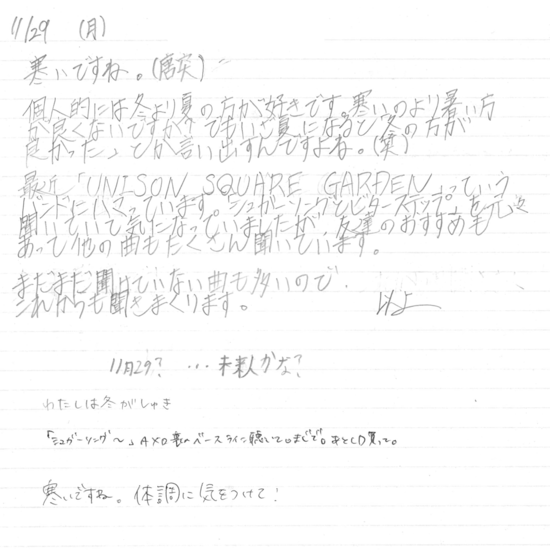 11/29 (月)
寒いですね。(唐突)
個人的には冬より夏の方が好きです。寒いのより暑い方
が良くないですか? でもいざ夏になると「冬の方が
良かった」とか言い出すんですよね。(笑)
最近「UNISON SQUARE GARDEN」っていう
バンドにハマっています。シュガーソングとビターステップを元々
聞いていて気になっていましたが、友達のおすすめも
あって他の曲もたくさん聞いています。
まだまだ聞けていない曲も多いので、
これからも聞きまくります。
11月29? …未来人かな?
わたしは冬がしゅき
「シュガーソング〜」Aメロ裏のベースライン聴いて。まじで。あとCD買って。
寒いですね。体調に気をつけて!